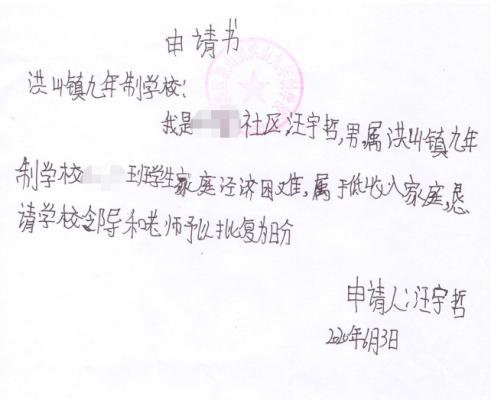 申请书
洪山镇九年制学校:
我是社区汪宇哲,男,属洪山镇九年
制学校班学生家庭经济困难,属于低收入家庭,恳
请学校领导和老师予以批复为盼
申请人:汪宇哲
2020年6月3日